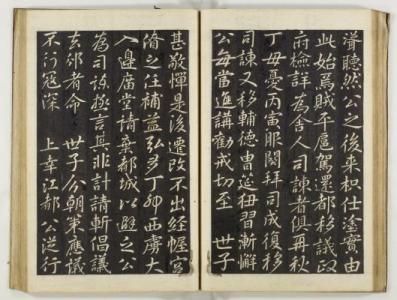 聳聽然公之後来枳仕塗實由
此始焉賊平扈駕還都移議政
府檢詳為舍人司諫者俱再秋
丁母憂丙寅服闋拜司成復移
司諫又移輔德胄筵狃習漸懈
公每當進講勸戒切至 世子
甚敬憚是後遷改不出經幄宮
僚之任補益弘多丁卯西虜大
入邉廟堂請棄都城以避之公
為司諫極言其非計請斬倡議
去邠者命 世子分朝策應議
不行寇深 上幸江都公從行